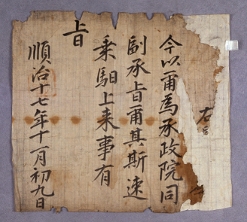 今以爾爲承政院同
副承旨爾其斯速
乗馹上来事有
旨
順治十七年十一月初九日